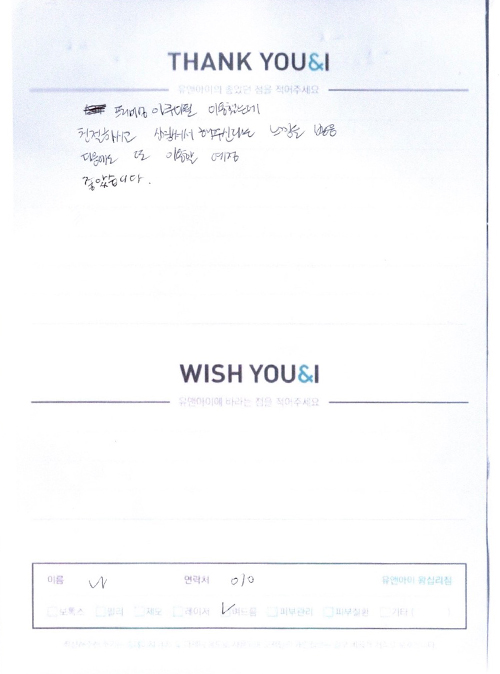 THANK YOU&I
유앤아이의 좋았던 점을 적어주세요
프리미엄 아쿠아필 이용했는데
친절하시고 상세하게 해주신다는 느낌을 받음
다음에도 또 이용할 예정
좋았습니다.
WISH YOU&I
유앤아이에 바라는 점을 적어주세요
이름 연락처 010 유앤아이 왕십리점
보톡스 필러 제모 레이저 여드름 피부관리 피부질환 기타 ( )